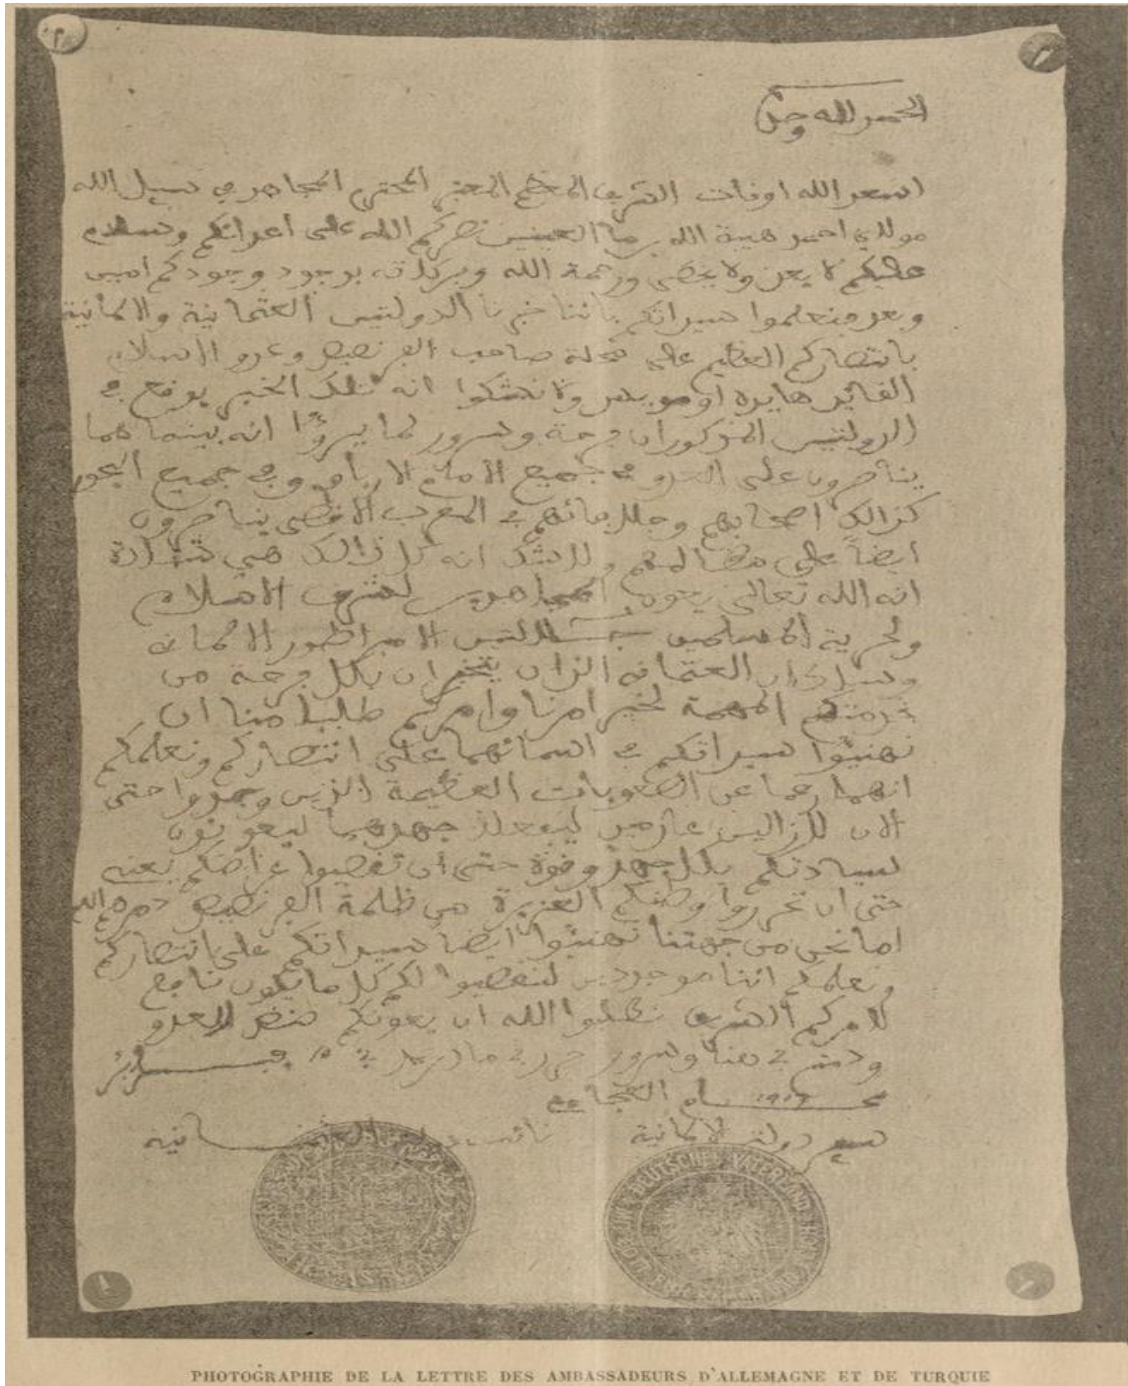 الحمد لله وحده
اسعد الله اوقات الشريف المعظم المحترم المجاهد في سبيل الله
مولاي احمد هيبة الله بن ما العينين نصركم الله على أعدائكم وسلام
عليكم لا يعد ولا يحصى ورحمة الله وبركاته بوجود وجودكم امين
وبعد فتعلموا سيداتكم باننا خبرنا الدولتين العثمانية والالمانية
بانتصاركم العظيم على محلة صاحب الفرنصيص وعدو الاسلام
القائد هايدة أو مويس ولا تشكوا انه تلك الخبر يوقع في
الدولتين المذكوران فرحة وسرور لما يروا انه بينما هما
يناصرون على العدو في جميع الاماكن الارباوي وفي جميع البحور
كذالك اصحابهم وحلفائهم في المغرب الاقصى يناصرون
ايضاً على ولا شك انه كل ذالك هي شهادة
انه الله تعالى يعون المجاهدين لشرف الاسلام
ولحرية المسلمين الامبراطور الالماني
العثماني الذان يخبران بكل فرحة من
خدمتكم المهمة لخير امرنا وامركم طلبا منا ان
نهنيوا سيداتكم في اسمائهما على انتصاركم ونعلمكم
انهما رغما عن الصعوبات العظيمة الذين وجدوا حتى
الان لازالين عازمين ليفعلا جهدهما ليعونون
لسيادتكم بكل جهد وقوة حتى أن تقضيوا غراضكم يعني
حتى ان تحرروا وطنكم العزيزة من ظلمة الفرنصيص دمرهم الله
اما نحن من جهتنا نهنيوا ايضا سيداتكم على انتصاركم
ونعلمكم اننا موجودين لنقضيوا لكم كل ما يكون نافع
لامركم الشريف نطلبوا الله ان يعونكم ضد العدو
ودمتم في هنا وسرور حرر في مادريد في ١٥ فبراير
عام ١٩١٧ العجامي
سفير دولة الالمانية نائب دولة العثمانية
DEUTSCHES VATERLAND
PHOTOGRAPHIE DE LA LETTRE DES AMBASSADEURS D'ALLEMAGNE ET DE TURQUIE